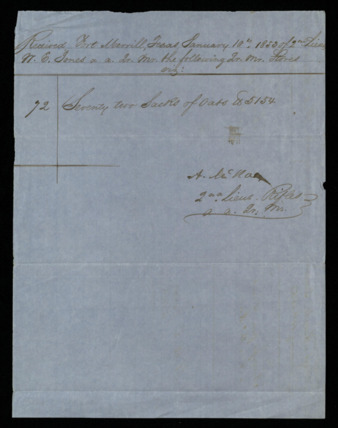 Received, Fort Merrill, Texas January 10th, 1853 of 2nd Lieut
W. E. Jones a a Qr. Mr. the following Qr. Mr. Stores
viz:
72 Seventy two Sacks of Oats
A. McRae
2nd Lieut. Rifles
a. a. Qr. Mr.